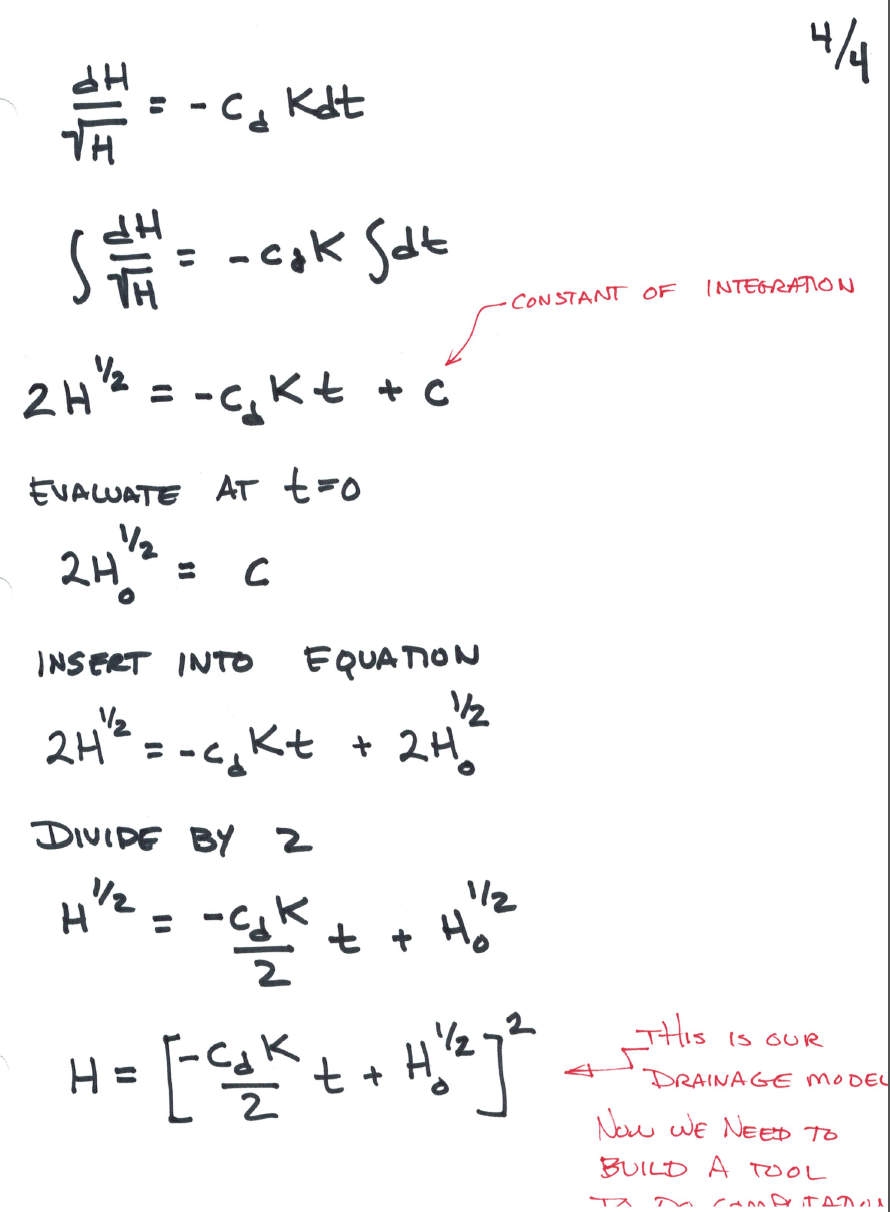 4/4
dH/√H = - C_d Kdt
∫ dH/√H = - C_d K ∫dt
CONSTANT OF INTEGRATION
2H^1/2 = - C_d K t + C
EVALUATE AT t=0
2H_0^1/2 = C
INSERT INTO EQUATION
2H^1/2 = - C_d K t + 2H_0^1/2
DIVIDE BY 2
H^1/2 = -C_d K/2 t + H_0^1/2
H = [-C_d K/2 t + H_0^1/2]^2
THIS IS OUR
DRAINAGE MODEL
NOW WE NEED TO
BUILD A TOOL
TO DO COMPUTATION